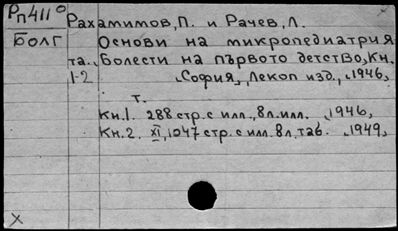 Рп411° Рахамимов, П. и Рачев, Л.
Болг Основи на микропедиатрия
та. Болести на първото детство, Кн.
1-2 „София„, Лекоп изд., „1946„
т.
Кн.1. 288 стр. с илл., 8л. илл. „1946„
Кн.2. XI, 1047 стр. с илл. 8л. таб. „1949„
X